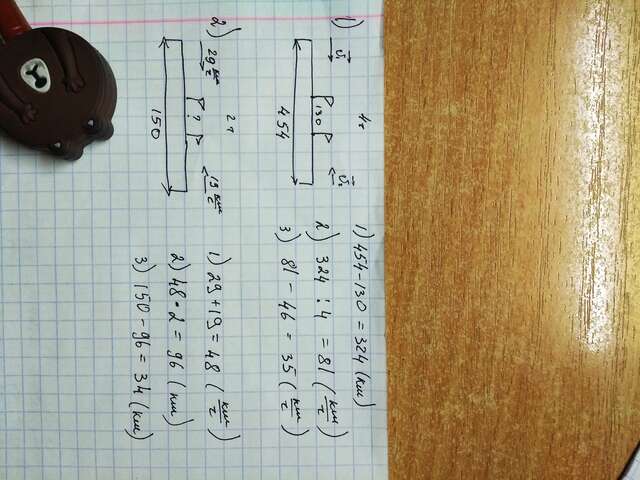 1)
4ч
130
454
1) 454-130 = 324 (км)
2) 324 : 4 = 81 (км/ч)
3) 81 - 46 = 35 (км/ч)
2)
29 км/ч 2ч 19 км/ч
?
150
1) 29+19=48 (км/ч)
2) 48·2=96 (км)
3) 150-96=34 (км)